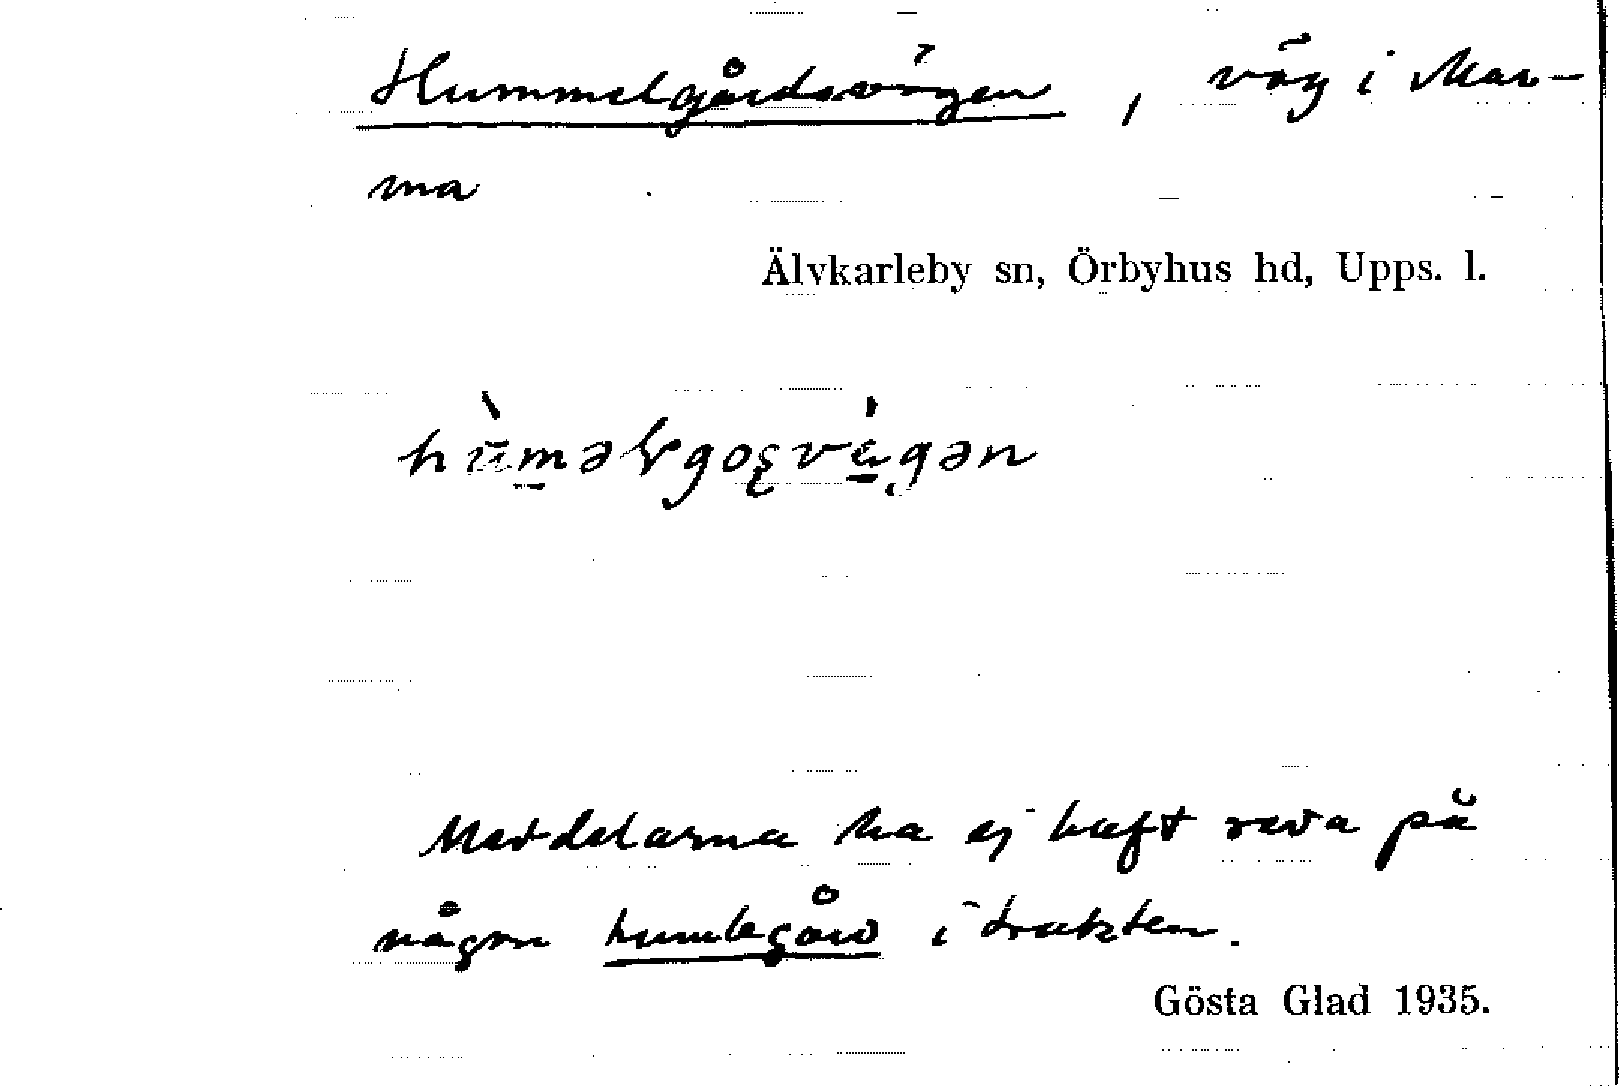 Hummelgårdsvägen, väg i Mar-
ma
Älvkarleby sn, Örbyhus hd, Upps. l.
Meddelarna ha ej haft reda på
någon humlegård i trakten.
Gösta Glad 1935.